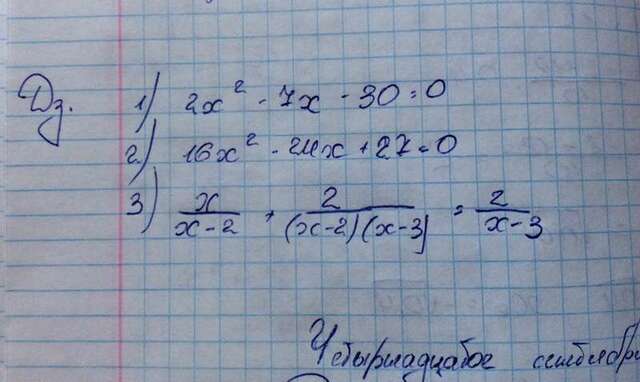 Дз. 1) 2x² - 7x - 30 = 0
2) 16x² - 24x + 27 = 0
3) x/(x-2) + 2/((x-2)(x-3)) = 2/(x-3)
Четырнадцатое сентября